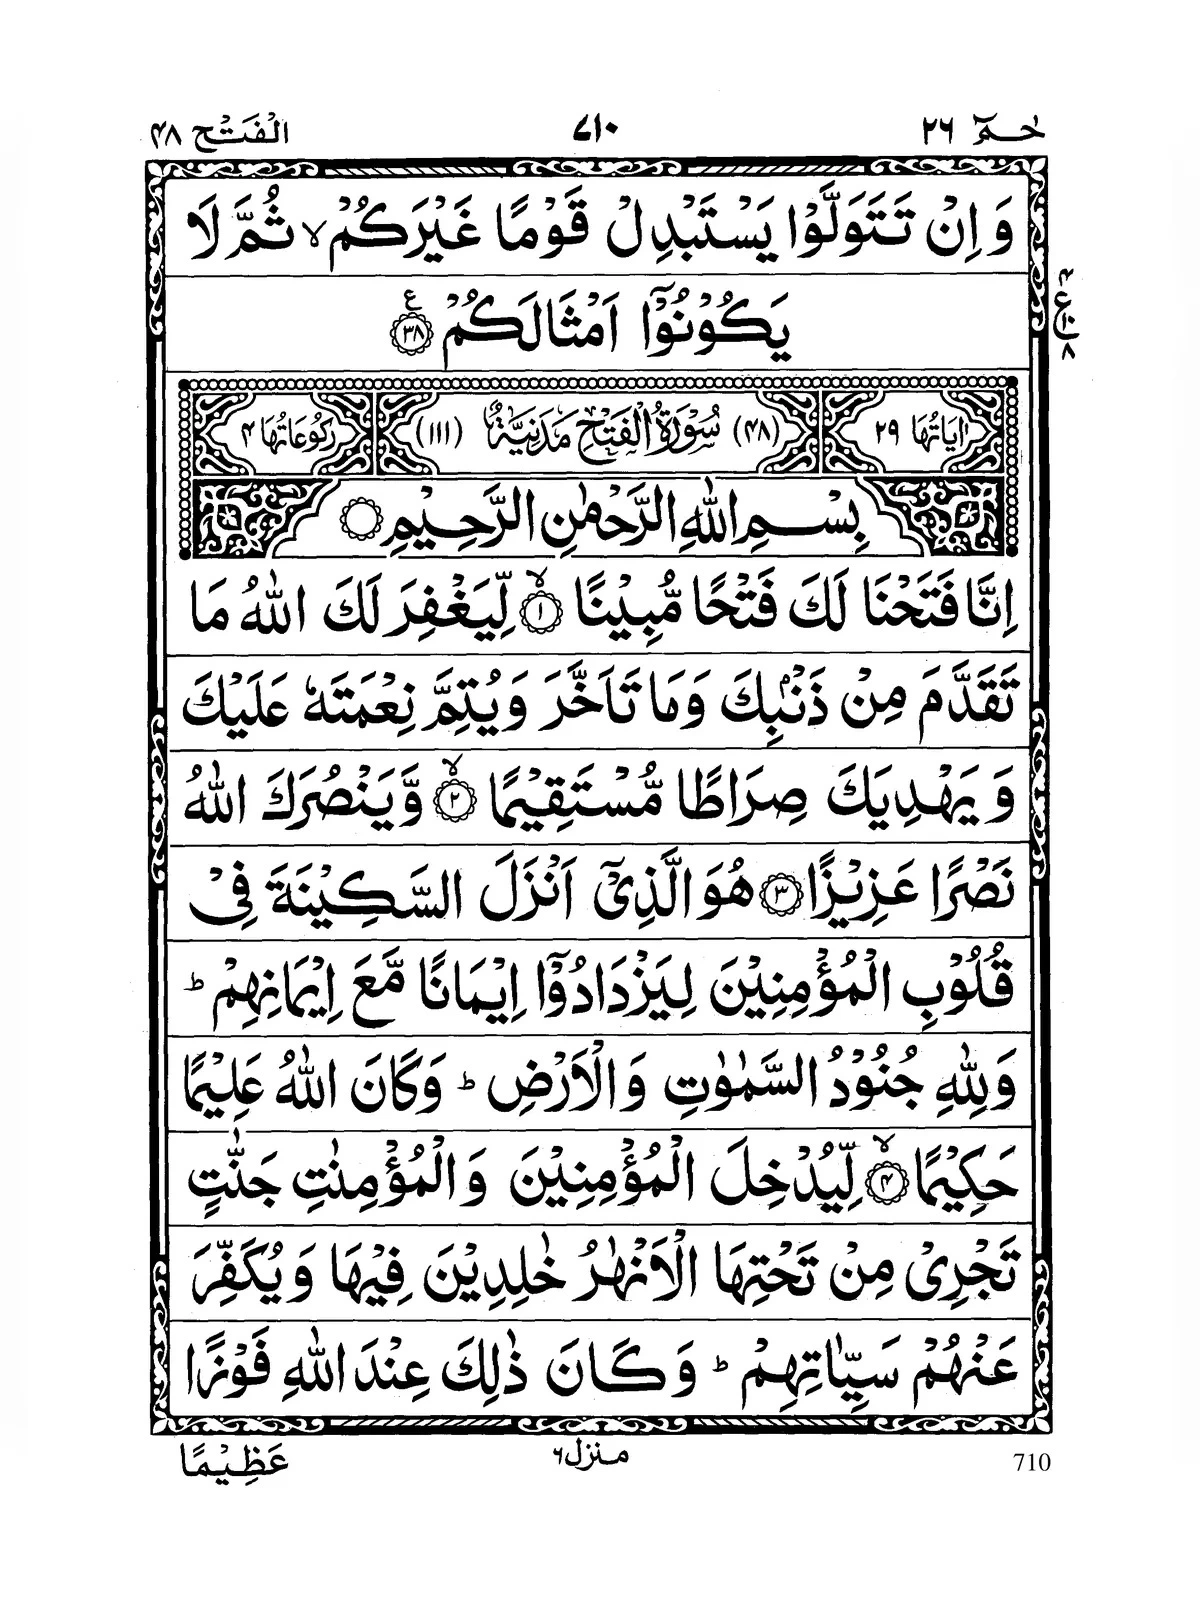 حٰمٓ ٢٦
٧١٠
الْفَتْح ٤٨
وَ اِنْ تَتَوَلَّوْا يَسْتَبْدِلْ قَوْمًا غَيْرَكُمْ ۙ ثُمَّ لَا
يَكُوْنُوْۤا اَمْثَالَكُمْ ﴿٣٨﴾ ع
٤
ع ١٠
٨
اٰيَاتُهَا ٢٩
(٤٨) سُوْرَةُ الْفَتْحِ مَدَنِيَّةٌ (١١١)
رُكُوْعَاتُهَا ٤
بِسْمِ اللّٰهِ الرَّحْمٰنِ الرَّحِيْمِ
اِنَّا فَتَحْنَا لَكَ فَتْحًا مُّبِيْنًا ﴿١﴾ ۙ لِّيَغْفِرَ لَكَ اللّٰهُ مَا
تَقَدَّمَ مِنْ ذَنْۢبِكَ وَمَا تَاَخَّرَ وَيُتِمَّ نِعْمَتَهٗ عَلَيْكَ
وَ يَهْدِيَكَ صِرَاطًا مُّسْتَقِيْمًا ﴿٢﴾ ۙ وَّيَنْصُرَكَ اللّٰهُ
نَصْرًا عَزِيْزًا ﴿٣﴾ هُوَ الَّذِيْۤ اَنْزَلَ السَّكِيْنَةَ فِيْ
قُلُوْبِ الْمُؤْمِنِيْنَ لِيَزْدَادُوْۤا اِيْمَانًا مَّعَ اِيْمَانِهِمْ ؕ
وَلِلّٰهِ جُنُوْدُ السَّمٰوٰتِ وَالْاَرْضِ ؕ وَكَانَ اللّٰهُ عَلِيْمًا
حَكِيْمًا ﴿٤﴾ ۙ لِّيُدْخِلَ الْمُؤْمِنِيْنَ وَالْمُؤْمِنٰتِ جَنّٰتٍ
تَجْرِيْ مِنْ تَحْتِهَا الْاَنْهٰرُ خٰلِدِيْنَ فِيْهَا وَيُكَفِّرَ
عَنْهُمْ سَيِّاٰتِهِمْ ؕ وَكَانَ ذٰلِكَ عِنْدَ اللّٰهِ فَوْزًا
عَظِيْمًا
منزل ٦
710